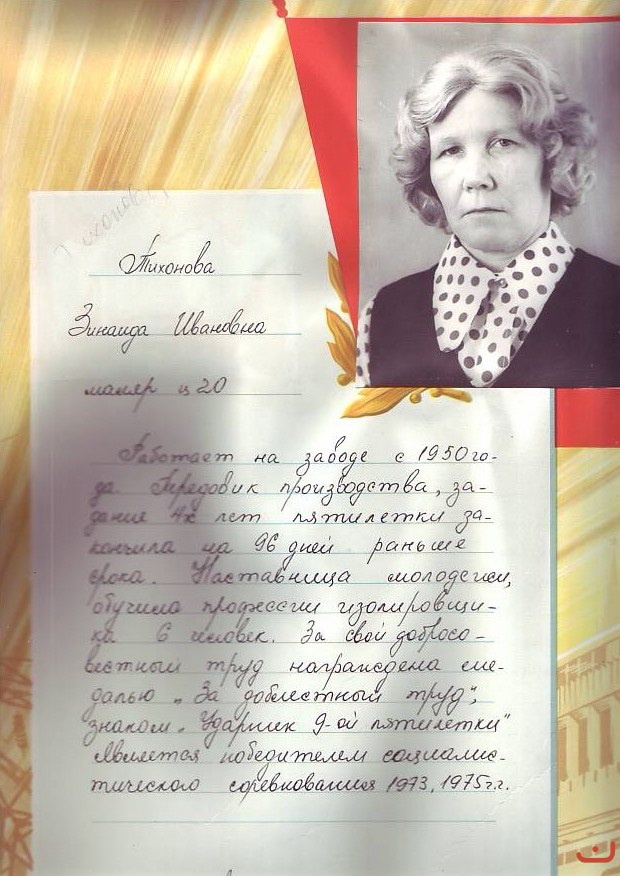 Тихонова
Тихонова
Зинаида Ивановна
маляр ц 20
Работает на заводе с 1950 го-
да. Передовик производства, за-
дание 4х лет пятилетки за-
кончила на 96 дней раньше
срока. Наставница молодежи,
обучила профессии изолировщи-
ка 6 человек. За свой добросо-
вестный труд награждена ме-
далью „За доблестный труд",
знаком „Ударник 9-ой пятилетки"
Является победителем социалис-
тического соревнования 1973, 1975 г.г.